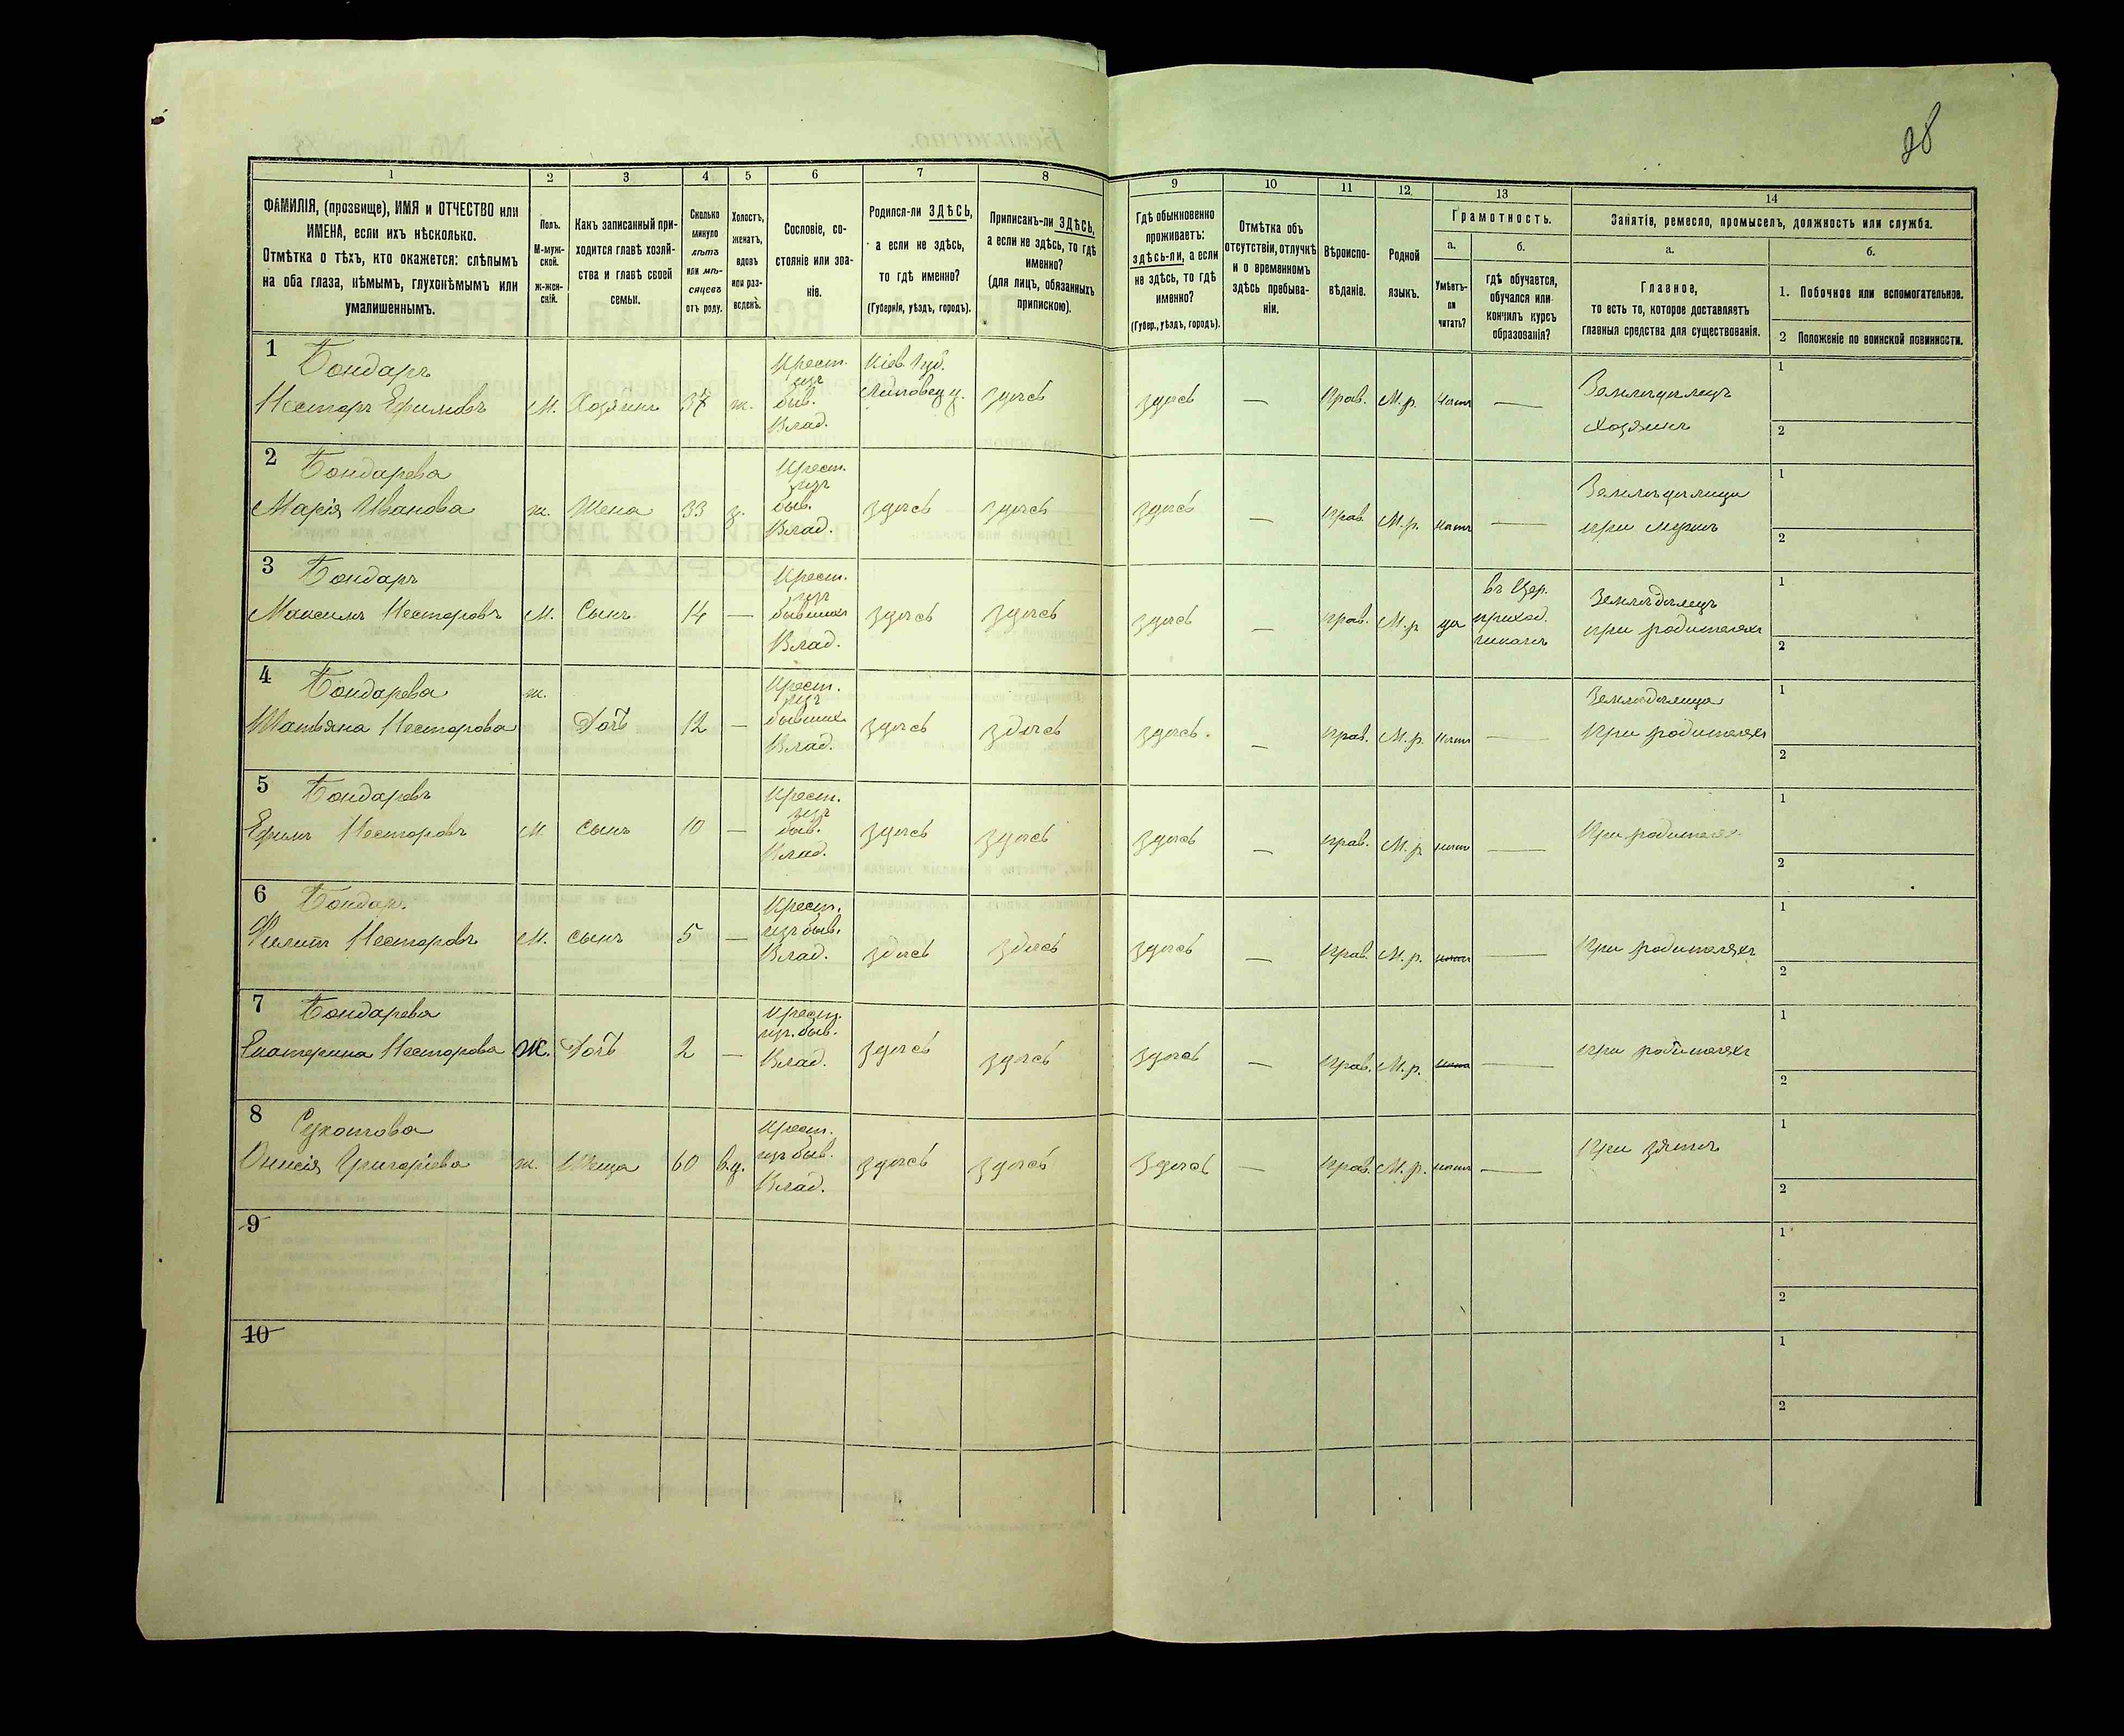 28
1 2 3 4 5 6 7 8 9 10 11 12. 13 14
ФАМИЛІЯ, (прозвище), ИМЯ и ОТЧЕСТВО или
ИМЕНА, если ихъ нѣсколько.
Отмѣтка о тѣхъ, кто окажется: слѣпымъ
на оба глаза, нѣмымъ, глухонѣмымъ или
умалишеннымъ.
Полъ.
М-муж-
ской.
ж-жен-
скій.
Какъ записанный при-
ходится главѣ хозяй-
ства и главѣ своей
семьи.
Сколько
минуло
лѣтъ
или мѣ-
сяцевъ
отъ роду.
Холостъ,
женатъ,
вдовъ
или раз-
веденъ.
Сословіе, со-
стояніе или зва-
ніе.
Родился-ли ЗДѢСЬ,
а если не здѣсь,
то гдѣ именно?
(Губернія, уѣздъ, городъ).
Приписанъ-ли ЗДѢСЬ,
а если не здѣсь, то гдѣ
именно?
(для лицъ, обязанныхъ
припискою).
Гдѣ обыкновенно
проживаетъ:
здѣсь-ли, а если
не здѣсь, то гдѣ
именно?
(Губер., уѣздъ, городъ).
Отмѣтка объ
отсутствіи, отлучкѣ
и о временномъ
здѣсь пребыва-
ніи.
Вѣроиспо-
вѣданіе.
Родной
языкъ.
Грамотность.
а.
Умѣетъ-
ли
читать?
б.
гдѣ обучается,
обучался или
кончилъ курсъ
образованія?
Занятіе, ремесло, промыселъ, должность или служба.
а.
Главное,
то есть то, которое доставляетъ
главныя средства для существованія.
б.
1. Побочное или вспомогательное.
2 Положеніе по воинской повинности.
1 Бондаръ
Несторъ Ефимовъ М. Хозяинъ 37 ж. Крест. изъ быв. Влад. Кіев. Губ. Липовец у. здѣсь здѣсь — Прав. М.р. нѣтъ — Земледѣлецъ хозяинъ 1 2
2 Бондарева
Марія Иванова ж. Жена 33 з. Крест. изъ быв. Влад. здѣсь здѣсь здѣсь — прав. М.р. нѣтъ — Земледѣлица при мужѣ 1 2
3 Бондаръ
Максимъ Несторовъ М. Сынъ 14 — Крест. изъ бывшихъ Влад. здѣсь здѣсь здѣсь — прав. М.р да въ Цер. приход. Земледѣлецъ при родителяхъ 1 2
4 Бондарева
Татьяна Несторова ж. Дочь 12 — Крест. изъ бывших Влад. здѣсь здѣсь здѣсь. — прав. М.р. нѣтъ — Земледѣлица При родителяхъ 1 2
5 Бондаревъ
Ефимъ Несторовъ М. сынъ 10 — Крест. изъ быв. Влад. здѣсь здѣсь здѣсь — прав. М.р нѣтъ — При родителях 1 2
6 Бондар.
Филипъ Несторовъ М. сынъ 5 — Крест. изъ быв. Влад. здѣсь здѣсь здѣсь — прав. М.р. нѣтъ — При родителяхъ 1 2
7 Бондарева
Екатерина Несторова Ж. Дочь 2 — Крест. изъ. быв. Влад. здѣсь здѣсь здѣсь — прав. М.р. — при родителяхъ 1 2
8
Онисія Григоріева ж. Теща 60 в.д. Крест. изъ быв. Влад. здѣсь здѣсь здѣсь — прав. М.р. нѣтъ — При зятѣ 1 2
9 1 2
10 1 2